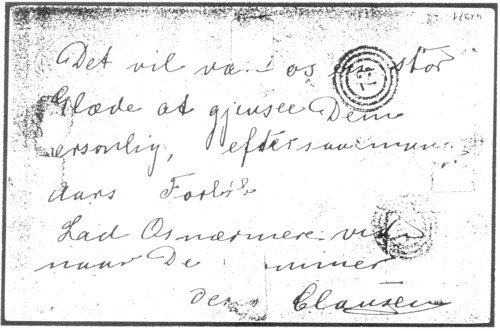 Det vil væ os en stor
Glæde at gjensee Dem
ersonlig, efter saa man
aars Forløb
Lad Os nærmere vid
naar De ommer
Deres Clausen